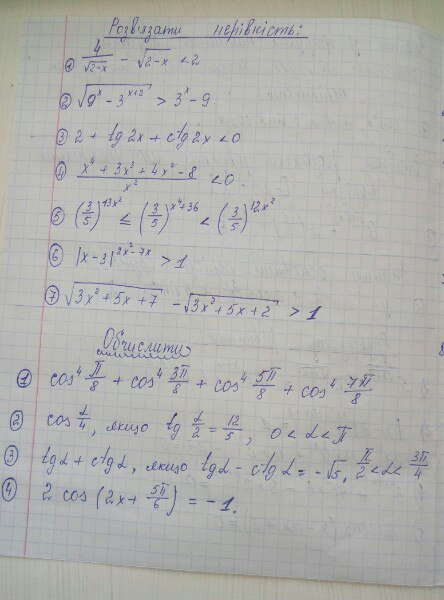 Розв'язати нерівність:
① 4/√(2-x) - √(2-x) < 2
② √(9^x - 3^(x+2)) > 3^x - 9
③ 2 + tg 2x + ctg 2x < 0
④ (x⁴ + 3x³ + 4x² - 8)/x² < 0
⑤ (3/5)^(13x²) ≤ (3/5)^(x⁴+36) < (3/5)^(12x²)
⑥ |x-3|^(2x²-7x) > 1
⑦ √(3x² + 5x + 7) - √(3x² + 5x + 2) > 1
Обчислити
① cos⁴ π/8 + cos⁴ 3π/8 + cos⁴ 5π/8 + cos⁴ 7π/8
② cos α/4, якщо tg α/2 = 12/5, 0 < α < π
③ tgα + ctgα, якщо tgα - ctgα = -√5, π/2 < α < 3π/4
④ 2 cos (2x + 5π/6) = -1.